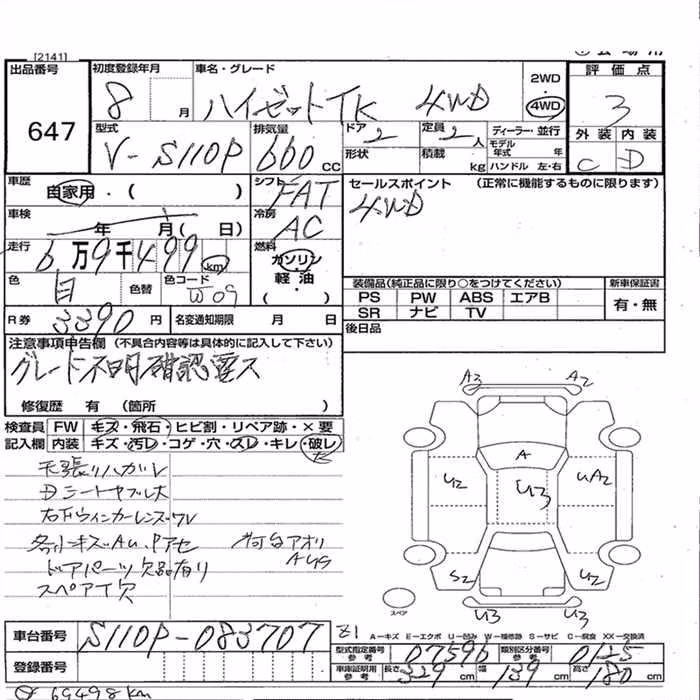 [2141]
出品番号 647
初度登録年月 8 月
車名・グレード ハイゼットTK 4WD
2WD 4WD
評価点 3
外装 内装
C D
型式 V-S110P
排気量 660 CC
ドア 2
形状
定員 2 人
積載 kg
ディーラー・並行
モデル年式 年
ハンドル 左・右
車歴 自家用・( )
シフト FAT
セールスポイント (正常に機能するものに限ります)
4WD
車検 年 月( 日)
冷房 AC
走行 6万9千499 km
燃料 ガソリン・軽油・( )
色 白 色替 色コード W09
装備品(純正品に限り○をつけてください) 新車保証書
PS PW ABS エアB
SR ナビ TV
有・無
R券 3390 円 名変通知期限 月 日
後日品
注意事項申告欄 (不具合内容等は具体的に記入して下さい)
グレード不明確認要ス
修復歴 有 (箇所 )
検査員記入欄
FW キズ・飛石・ヒビ割・リペア跡・×要
内装 キズ・汚レ・コゲ・穴・スレ・キレ・破レ
天張リハガレ
Dシートヤブレ大
右Fウィンカーレンズワレ
各小キズAU.Pアセ 荷台アオリ
AUS
ドアパーツ欠品有り
スペアT欠
A3 A2
A
U2 U3 UA2
S2 U2
スペア
U3 U3
車台番号 S110P-083707
登録番号
Z1 A-キズ E-エクボ U-凹み W-補修跡 S-サビ C-腐食 XX-交換済
型式指定番号 参考 07596 類別区分番号 参考 0125
車庫証明用 参考 長さ 329 cm 幅 139 cm 高さ 180 cm
69498km